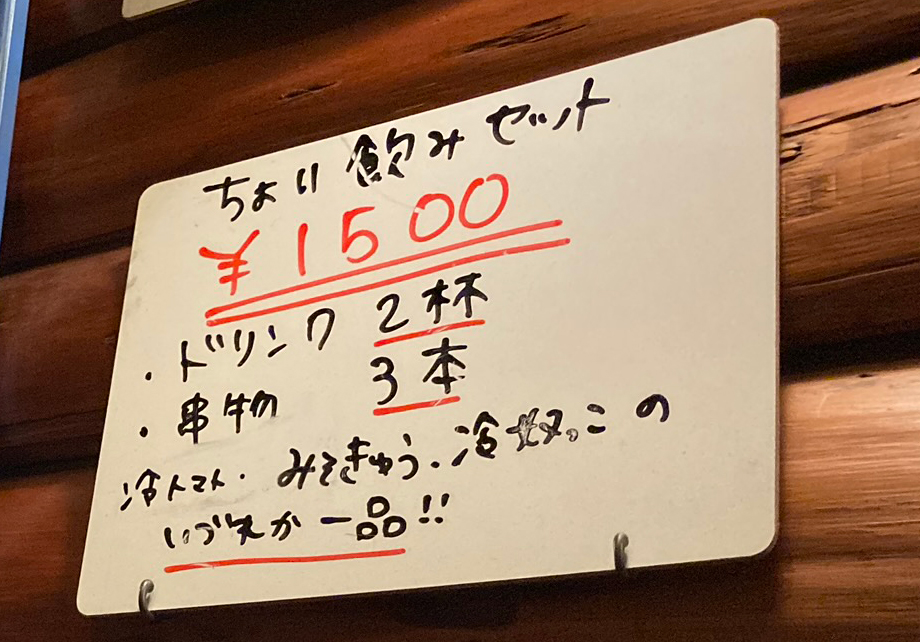 ちょい飲みセット
¥1500
・ドリンク 2杯
・串物 3本
冷トマト・みそきゅう・冷奴。この
いづれか一品!!